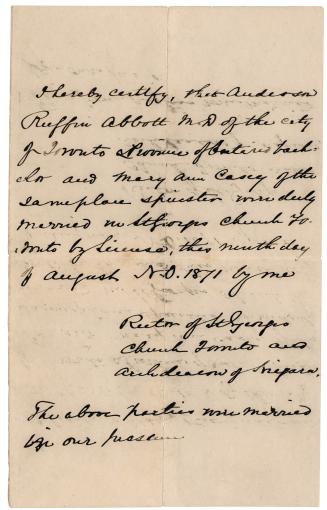 I hereby certify, that Anderson
Ruffin Abbott M.D of the city
of Toronto Province of Ontario bach-
elor and Mary Ann Casey of the
same place spinster were duly
married in St Georges Church To-
ronto by License, this ninth day
of August A.D. 1871 by me
Rector of St Georges
Church Toronto and
Archdeacon of Niagara.
The above parties were married
in our